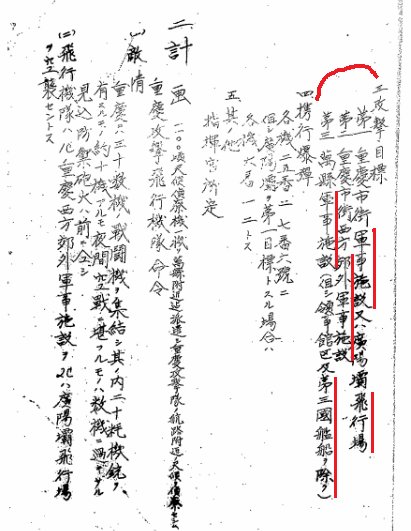 三、攻撃目標
第一 重慶市街軍事施設又ハ廣陽壩飛行場
第二 重慶市街西方郊外軍事施設
第三 萬縣軍事施設(但シ領事館區及第三國艦船ヲ除ク)
四、携行爆弾
各機二五番二 七番六號二
但シ廣陽壩ヲ第一目標トスル場合ハ
各機六番一二トス
五、其ノ他
指揮官所定
二 計畫
一〇〇頃天候偵察機一機萬縣附近迄派遣シ重慶攻撃隊ノ航路附近天候偵察セシム
重慶攻撃飛行機隊命令
(一)敵情
重慶ニハ三十数機戰闘機ヲ集結シ其ノ内二十粍機銃ヲ
有スルモノ約十機アルモ夜間空戰ニ堪フルモノハ数機ニ過ギザル
見込 防禦砲火ハ前ニ仝ジ
(二)飛行機隊ハ 重慶西方郊外軍事施設ヲ 廣陽壩飛行場
ヲ空襲セントス